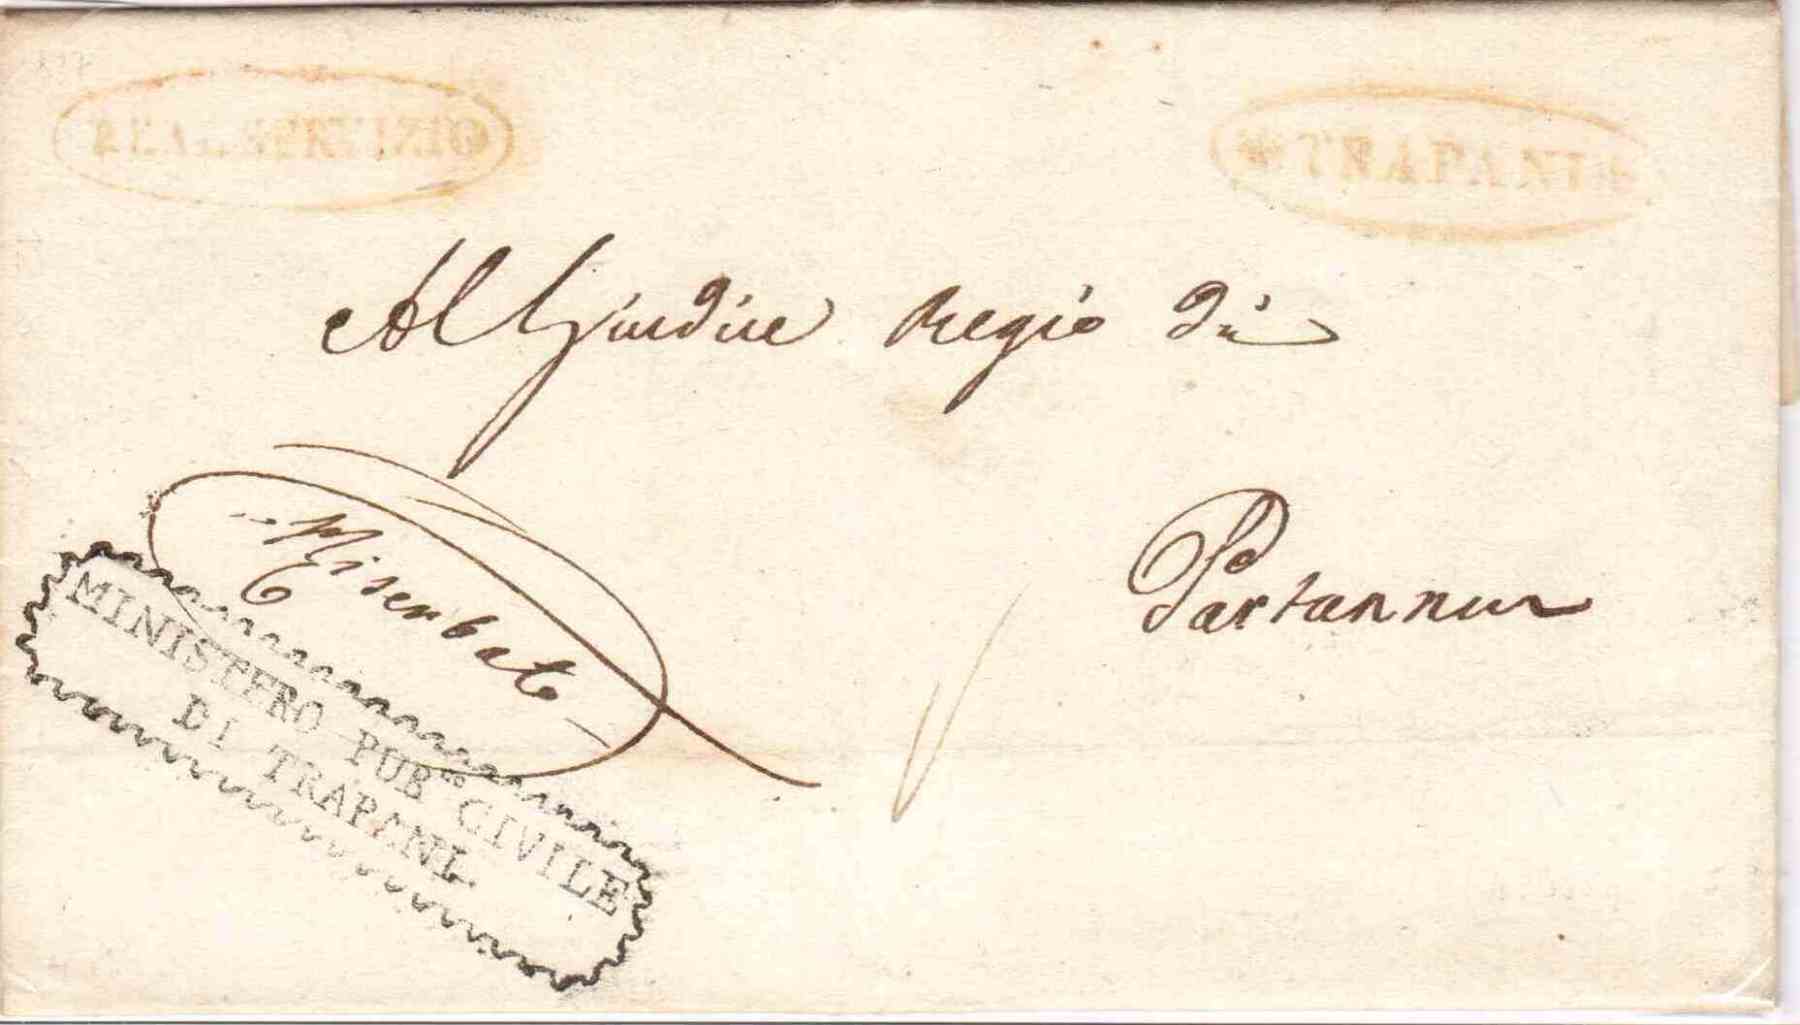 REAL SERVIZIO
* TRAPANI *
Al Giudice Regio di
Partanna
Riserbata
MINISTERO PUB.co CIVILE
DI TRAPANI.